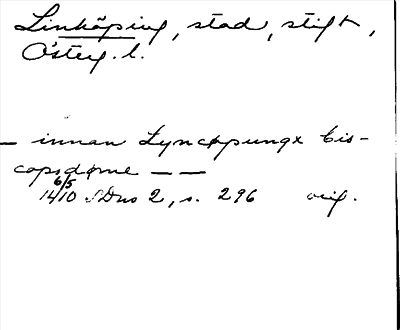 Linköping, stad, stift,
Österg. l.
— innan Lyncøpungx bis-
copsdøme — —
6/5
1410 SDns 2, s. 296 orig.